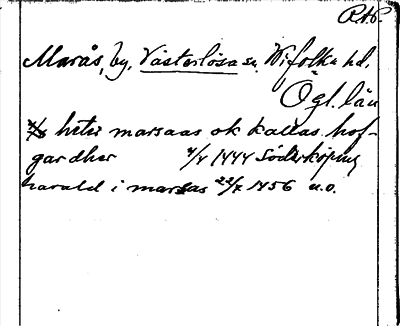 R.A.P.
Marås, by, Västerlösa sn. Vifolka hd.
Ögl. län
heter marsaas ok kallas hof-
gardher 4/8 1444 Söderköping
harald i marsas 22/7 1456 u.o.